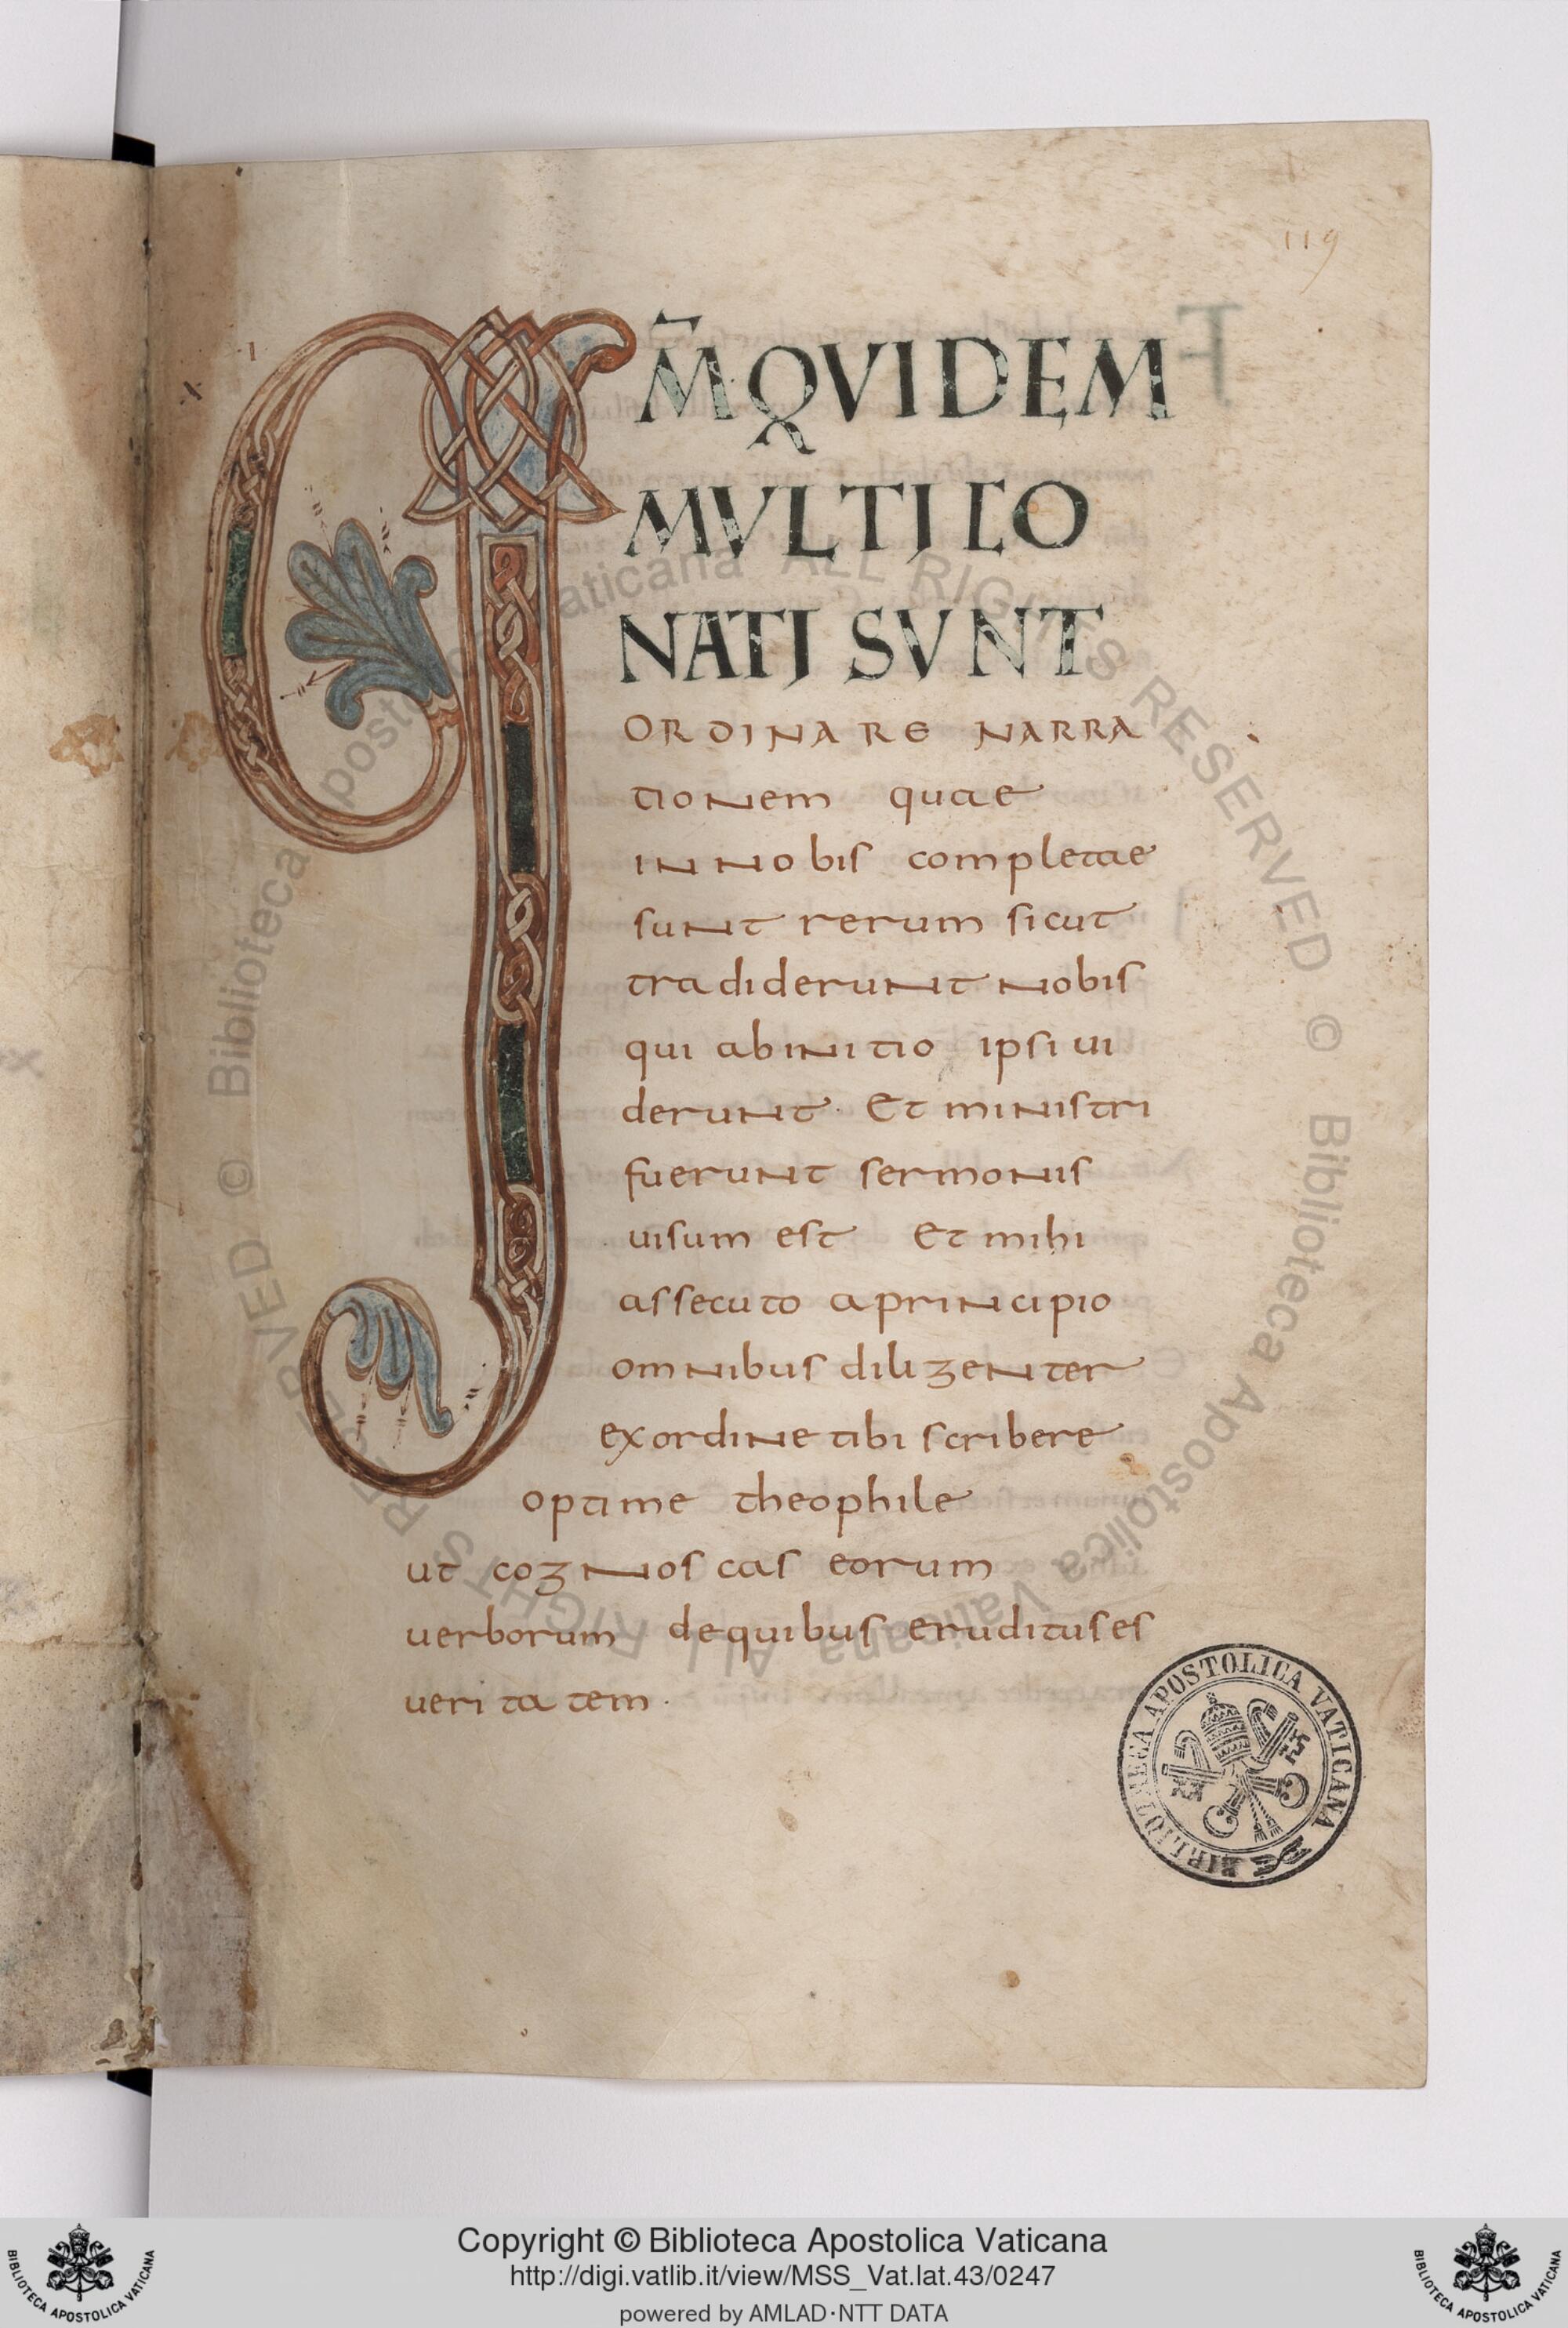 119
Q M̃ QVIDEM
MVLTI CO
NATI SVNT
ORDINARE NARRA
tionem quae
in nobis completae
sunt rerum sicut
tradiderunt nobis
qui ab initio ipsi ui
derunt. Et ministri
fuerunt sermonis
uisum est Et mihi
assecuto a principio
omnibus diligenter
ex ordine tibi scribere
optime theophile
ut cognoscas eorum
uerborum de quibus eruditus es
ueritatem.
BIBLIOTHECA APOSTOLICA VATICANA
© Biblioteca Apostolica Vaticana ALL RIGHTS RESERVED © Biblioteca Apostolica Vaticana ALL RIGHTS RESERVED
Copyright © Biblioteca Apostolica Vaticana
http://digi.vatlib.it/view/MSS_Vat.lat.43/0247
powered by AMLAD·NTT DATA
BIBLIOTECA APOSTOLICA VATICANA
BIBLIOTECA APOSTOLICA VATICANA